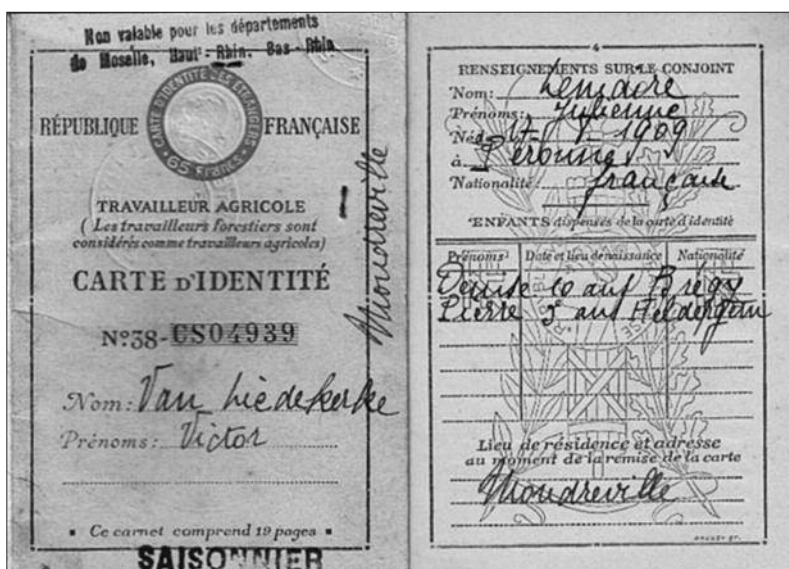 Non valable pour les départements
de Moselle, Haut-Rhin, Bas-Rhin
CARTE D'IDENTITÉ DES ÉTRANGERS
65 FRANCS
RÉPUBLIQUE FRANÇAISE
TRAVAILLEUR AGRICOLE
(Les travailleurs forestiers sont
considérés comme travailleurs agricoles)
CARTE D'IDENTITÉ
Nº38-CS04939
Nom: Van Liedekerke
Prénoms: Victor
Mondreville
Ce carnet comprend 19 pages
SAISONNIER
4
RENSEIGNEMENTS SUR LE CONJOINT
Nom: Lemaire
Prénoms: Julienne
Née 17 1909
à Péronne
Nationalité française
ENFANTS dispensés de la carte d'identité
Prénoms Date et lieu de naissance Nationalité
Denise 10 ans Brégy
Pierre 5 ans
Lieu de résidence et adresse
au moment de la remise de la carte
Mondreville